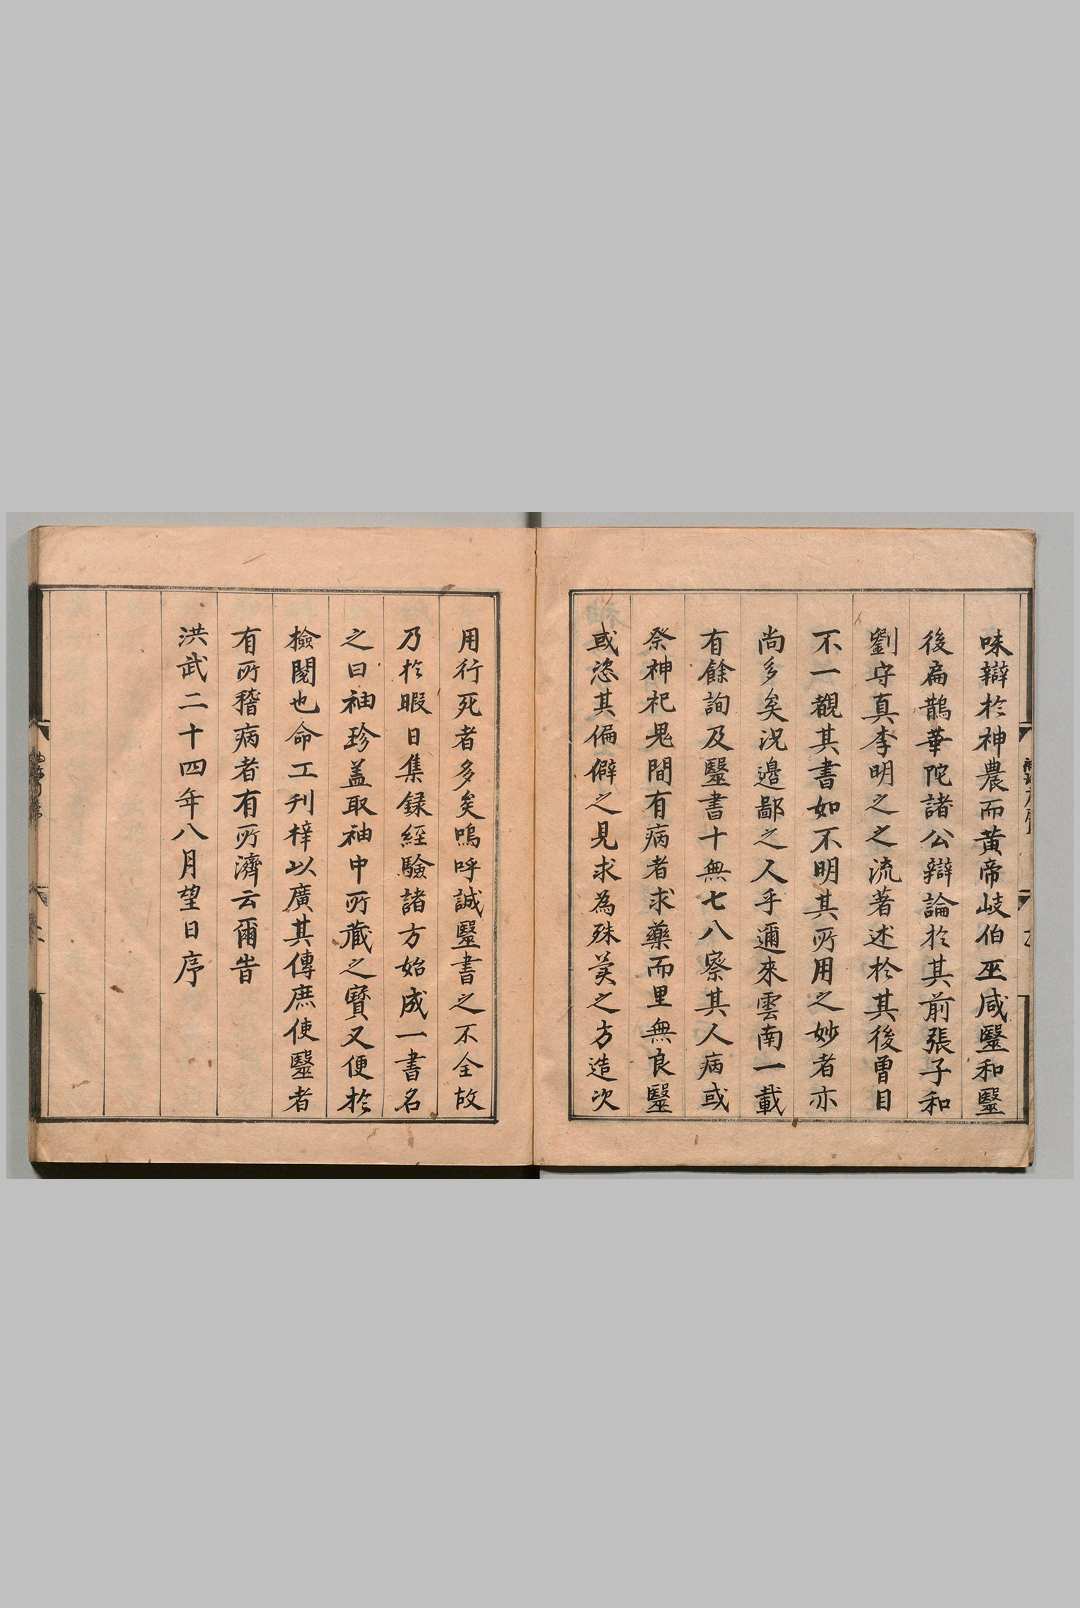 味辯於神農而黃帝岐伯巫咸毉和毉
後扁鵲華陀諸公辯論於其前張子和
劉守真李明之之流著述於其後曾目
不一覩其書如不明其所用之妙者亦
尚多矣況邊鄙之人乎邇來雲南一載
有餘詢及毉書十無七八察其人病或
祭神祀鬼間有病者求藥而里無良毉
或恣其偏僻之見求為殊異之方造次
用行死者多矣嗚呼誠毉書之不全故
乃於暇日集録經驗諸方始成一書名
之曰袖珍蓋取袖中所藏之寶又便於
檢閱也命工刊梓以廣其傳庶使毉者
有所稽病者有所濟云爾旹
洪武二十四年八月望日序